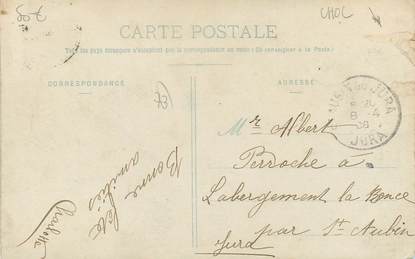 80€
CHOC
CARTE POSTALE
Tous les pays étrangers n'acceptent pas la correspondance au recto (Se renseigner à la Poste).
CORRESPONDANCE
ADRESSE
Bonne fête
amitiés
Charlotte
8 -4
08
JURA
Mr Albert
Perroche à
Labergement la Ronce
par St Aubin
Jura